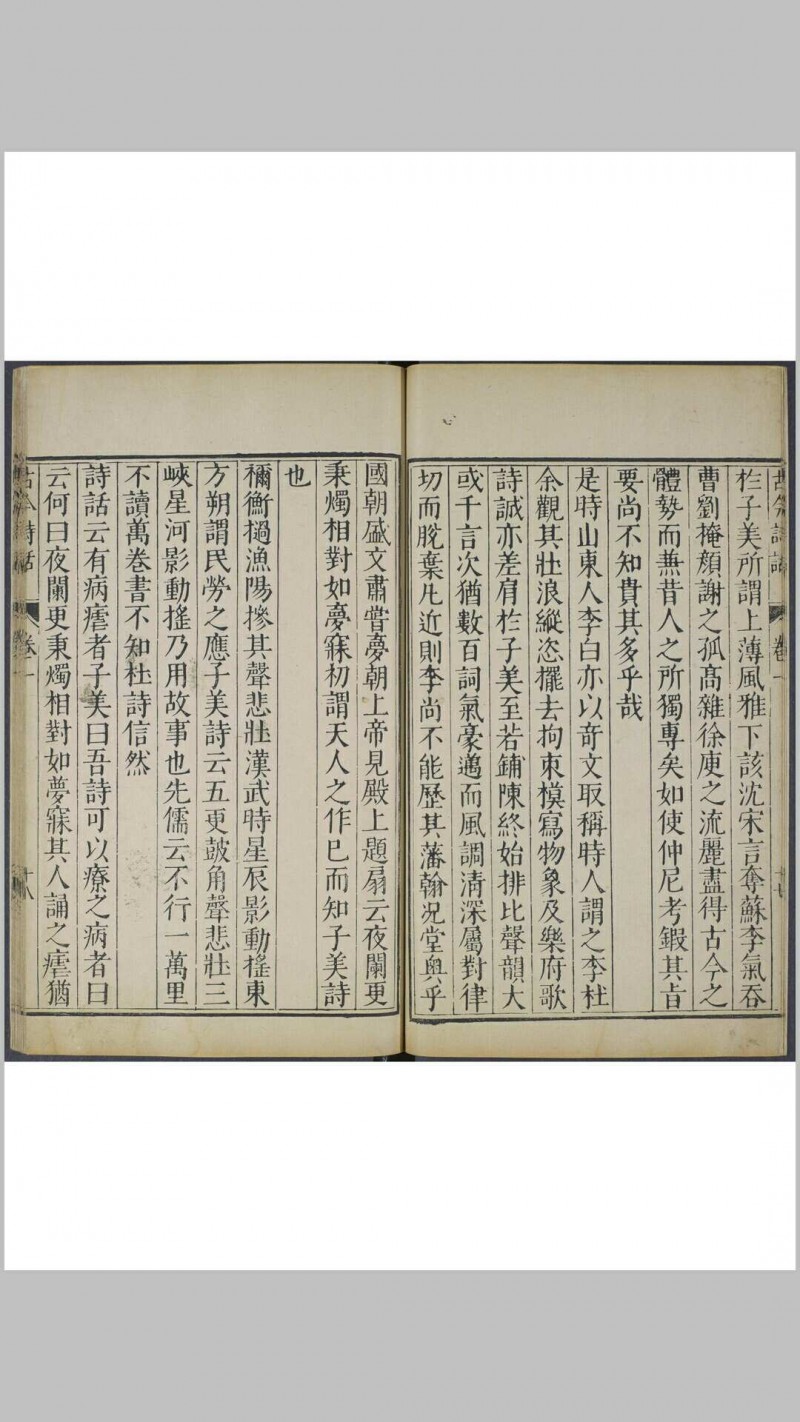 古今詩話 卷一
扵子美所謂上薄風雅下該沈宋言奪蘇李氣吞
曹劉掩顏謝之孤髙雜徐庾之流麗盡得古今之
體勢而無昔人之所獨專矣如使仲尼考鍜其旨
要尚不知貴其多乎哉
是時山東人李白亦以竒文取稱時人謂之李杜
余觀其壯浪縱恣擺去拘束模寫物象及樂府歌
詩誠亦差肩扵子美至若鋪陳終始排比聲韻大
或千言次猶數百詞氣豪邁而風調淸深屬對律
切而脫葉凡近則李尚不能歷其藩翰况堂奥乎
國朝盛文肅嘗夢朝上帝見殿上題扇云夜闌更
秉燭相對如夢寐初謂天人之作已而知子美詩
也
禰衡撾漁陽摻其聲悲壯漢武時星辰影動搖東
方朔謂民勞之應子美詩云五更鼓角聲悲壯三
峽星河影動搖乃用故事也先儒云不行一萬里
不讀萬卷書不知杜詩信然
詩話云有病瘧者子美曰吾詩可以療之病者曰
云何曰夜闌更秉燭相對如夢寐其人誦之瘧猶
古今詩話 卷一 十八